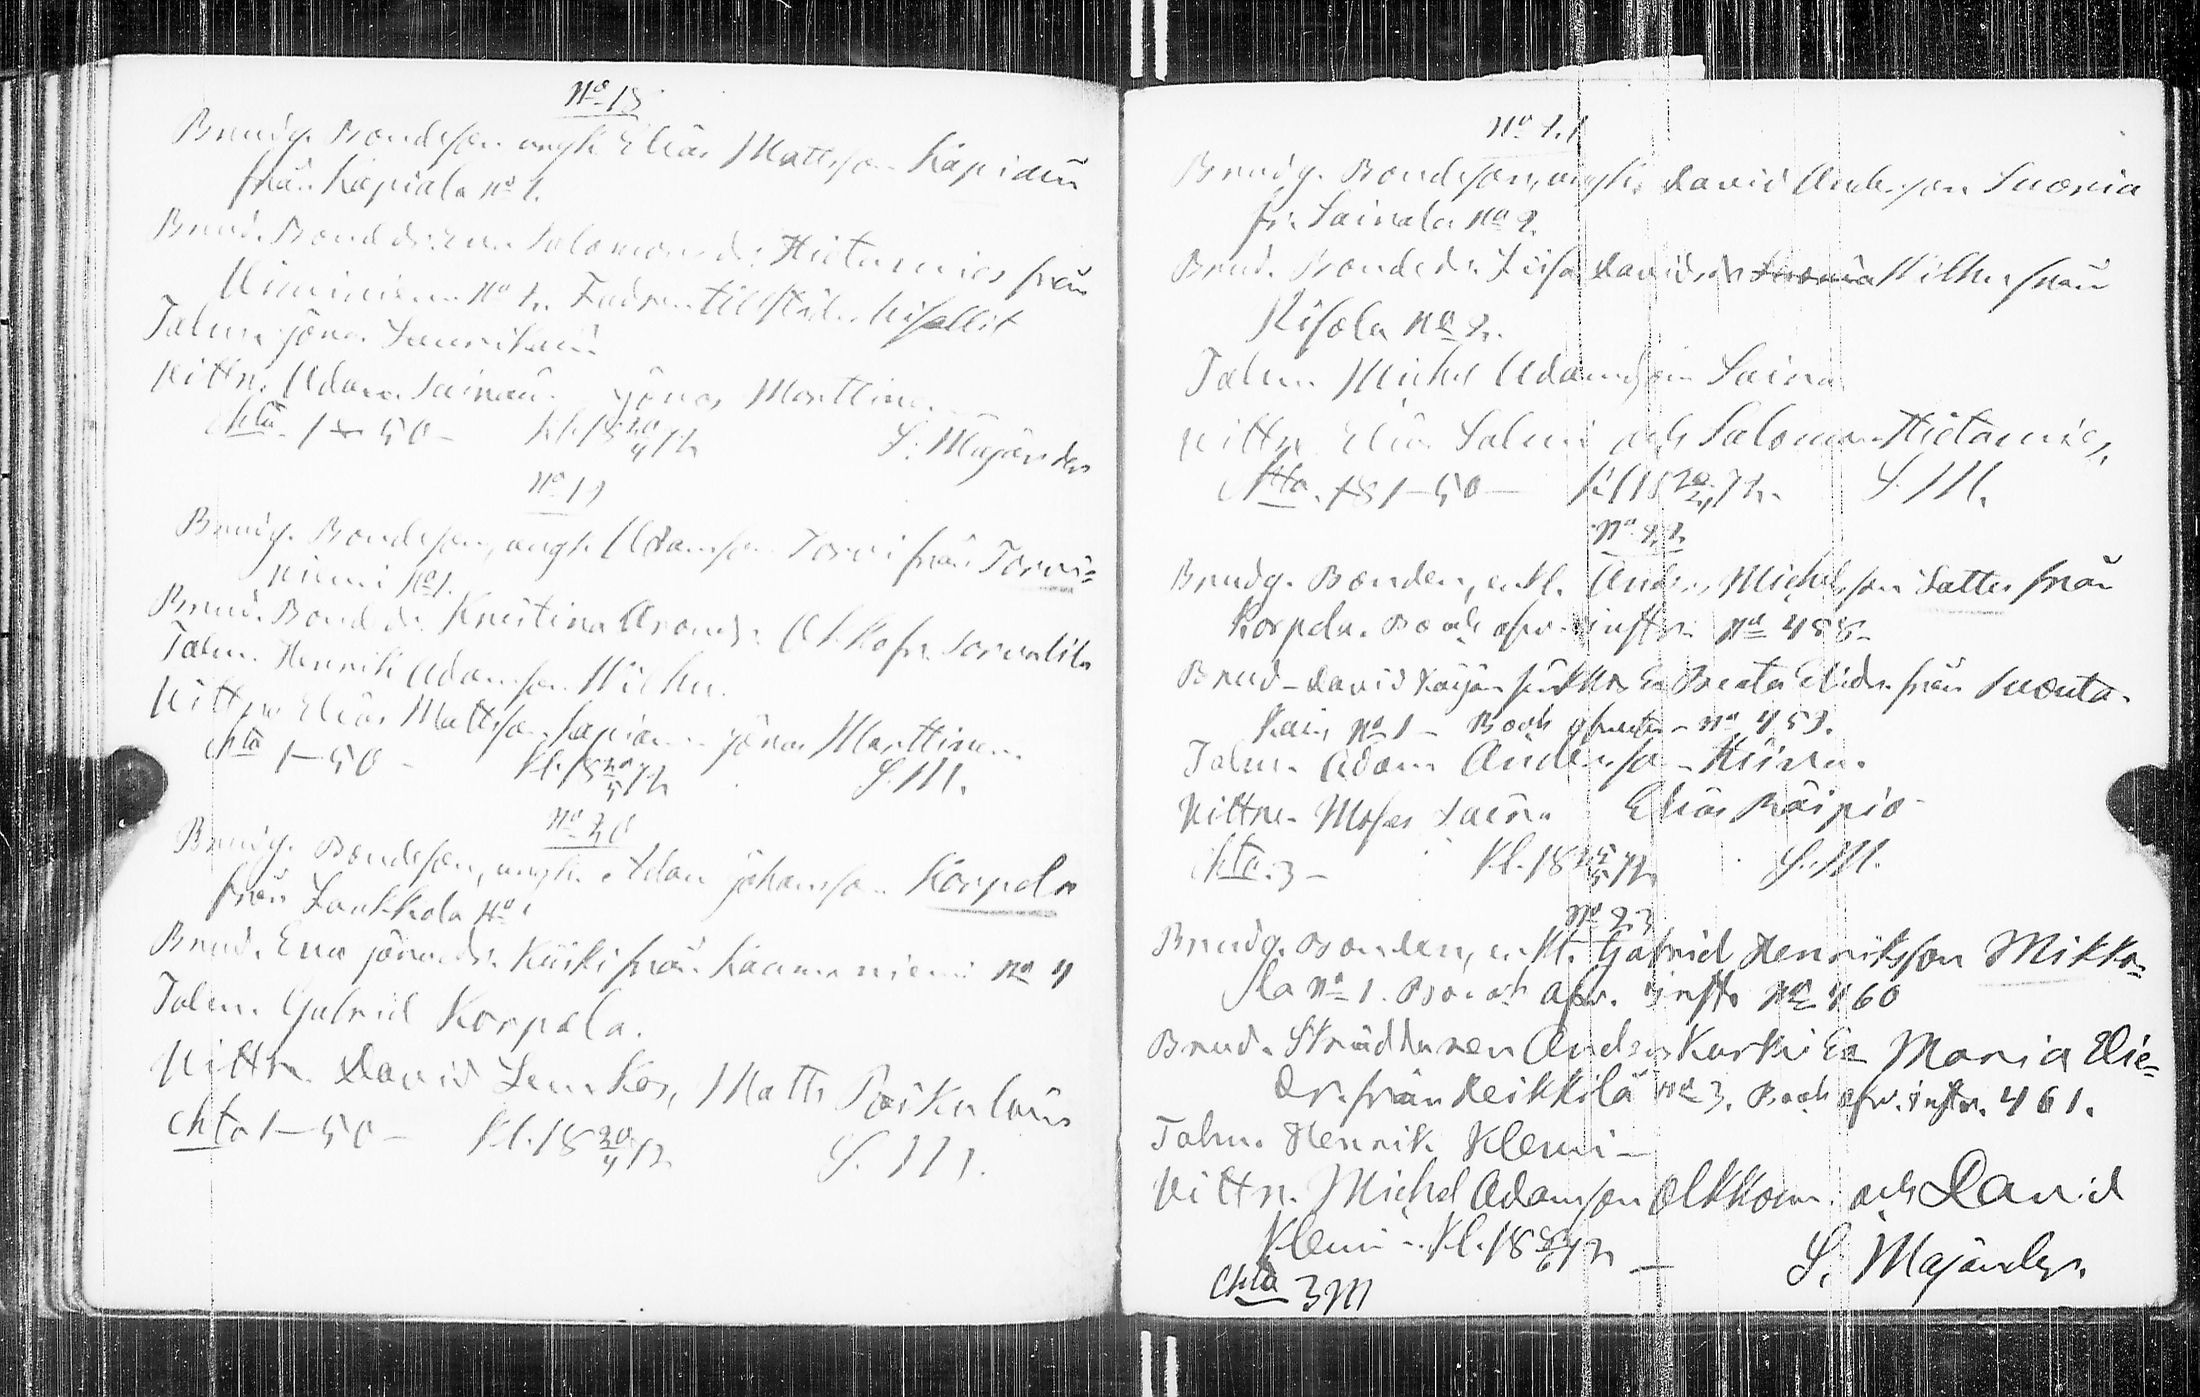 No 18
Brudg. Bondeson ungk. Elias Mattsson Käpiäin
från Käpiälä No 1.
Brud. Bond dr. Eva Salomonsdr. Hietamies från
Niminiemi No 2. Fadren tillstäder bifallit
Talm. Jöran Laurikain
Vittn. Adam Sainain. Jönas Marttine.
Chta 1-50- Kl. 18 20/4 72 S. Majander
No 19
Brudg. Bondeson, ungk. Adamson Torvi från Torvi=
niemi No 1.
Brud. Bond dr. Kristina Aronsdr. Olkko fr. Sorvalila
Talm. Henrik Adamson Wilhu.
Vittne Elias Mattsson Käpiäin Jönas Marttinen.
Chta 1-50- Kl. 18 20/4 72 S. M.
No 20
Brudg. Bondeson, ungk. Adam Johansson Korpela
från Laukkala No 1
Brud. Eva Jönasdr. Kiiski från Kaamaniemi No 4
Talm. Gabriel Korpela.
Vittn. David Lemkos, Matts Poikulain
Chta 1-50- Kl. 18 20/4 72 S. M.
No 21
Brudg. Bondeson, ungk. David Anderson Suonia
fr. Sainala No 2.
Brud. Bondedr. Lisa Davidsdr Wilhu från
Risola No 2.
Talm. Michel Adamsson Saina
Vittn. Elias Salmi och Salomon Hietamies,
Chta. 1-50- Kl 18 72. S. M.
No 22
Brudg. Bonden, enkl. Anders Michelsson Lattu från
Korpela. Boupt. No 458.
Brud. David Käijän Enka Beata Eliedr. från Suonta-
kain, No 1 - No 459.
Talm. Adam Andersson Hiirun.
Vittne. Moses Saina Elias Räipiö
Chta. 3- Kl. 18 72 S. M.
No 23
Brudg. Bonden, enkl. Gabriel Henriksson Mikko=
la No 1. No 460
Brud. Skräddaren Anders Kurki Ea Maria Elie=
dr. från Heikkilä No 3. 461.
Talm. Henrik Klemi-
Vittn. Michel Adamsson Olkkon. och David
Klemi. Kl. 18 72 - S. Majander.
Chta 3 M